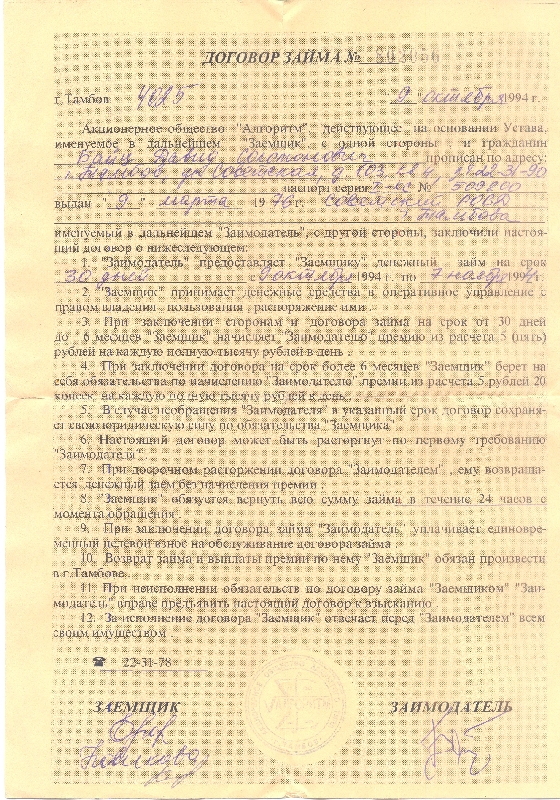 ДОГОВОР ЗАЙМА №
г. Тамбов 9 октября 1994 г.
Акционерное общество "Алгоритм", действующее на основании Устава,
именуемое в дальнейшем "Заемщик", с одной стороны и гражданин
прописан по адресу:
паспорт серия № 509800
выдан " 9 " марта 1976 г. Советским РОВД
г. Тамбова
именуемый в дальнейшем "Заимодатель", с другой стороны, заключили настоя-
щий договор о нижеследующем:
1. "Заимодатель" предоставляет "Заемщику" денежный займ на срок
30 дней 9 октября 1994 г. по 7 ноября 1994г.
2. "Заемщик" принимает денежные средства в оперативное управление с
правом владения, пользования, распоряжение ими.
3. При заключении сторонам и договора займа на срок от 30 дней
до 6 месяцев "Заемщик" начисляет "Заимодателю" премию из расчета 5 (пять)
рублей на каждую полную тысячу рублей в день.
4. При заключении договора на срок более 6 месяцев "Заемщик" берет на
себя обязательства по начислению "Заимодателю" премии из расчета 5 рублей 20
копеек на каждую полную тысячу рублей в день.
5. В случае необращения "Заимодателя" в указанный срок договор сохраня-
ет свою юридическую силу по обязательства "Заемщика".
6. Настоящий договор может быть расторгнут по первому требованию
"Заимодателя".
7. При досрочном расторжении договора "Заимодателем", ему возвраща-
ется денежный заем без начисления премии.
8. "Заемщик" обязуется вернуть всю сумму займа в течение 24 часов с
момента обращения.
9. При заключении договора займа "Заимодатель" уплачивает единовре-
менный целевой взнос на обслуживание договора займа.
10. Возврат займа и выплаты премии по нему "Заемщик" обязан произвести
в г.Тамбове.
11. При неисполнении обязательств по договору займа "Заемщиком" "Заи-
модатель" вправе предъявить настоящий договор к взысканию.
12. За исполнение договора "Заемщик" отвечает перед "Заимодателем" всем
своим имуществом.
☎ 22-31-78
ЗАЕМЩИК ЗАИМОДАТЕЛЬ